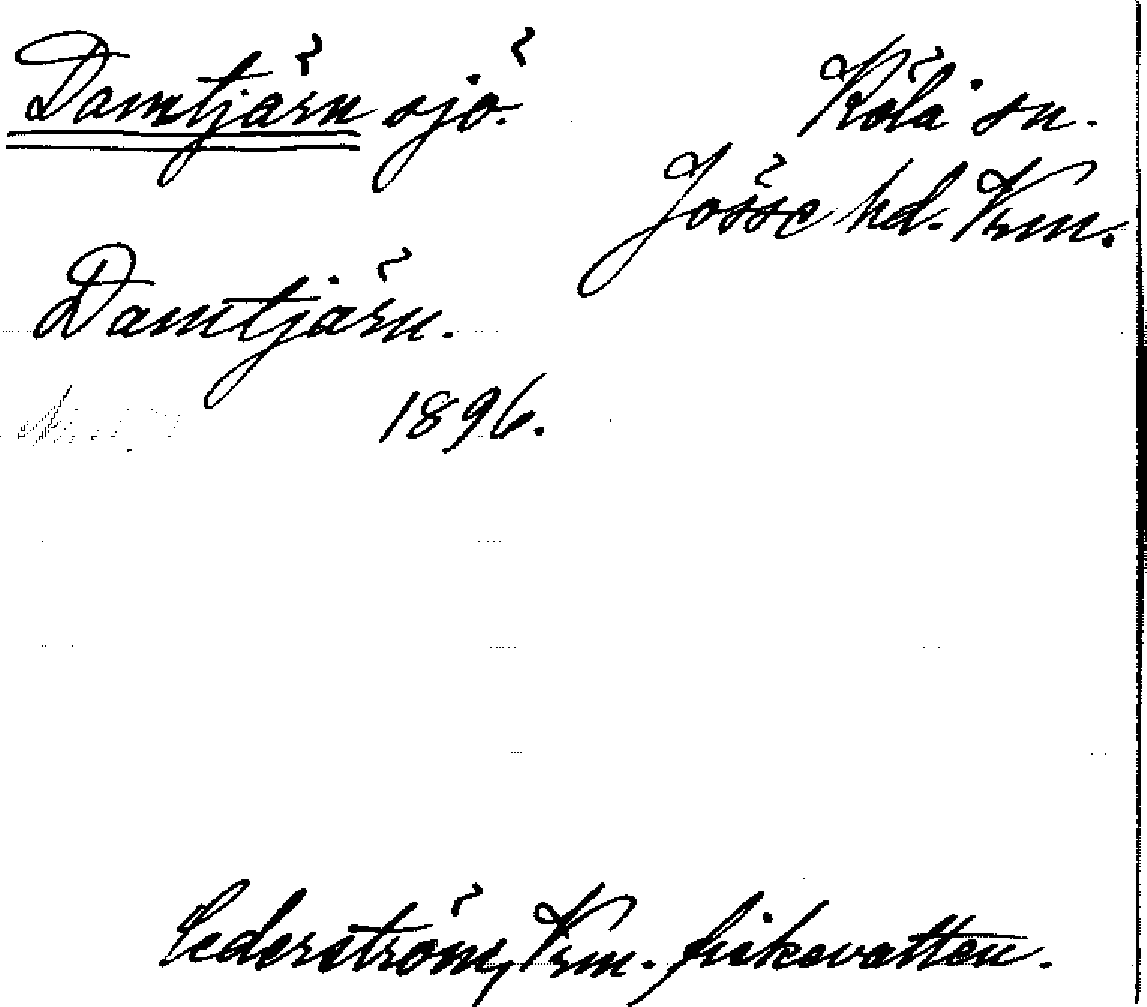 Damtjärn sjö.
Köla sn.
Jösse hd. Vrm.
Damtjärn.
1896.
Cederström, Vrm. fiskevatten.